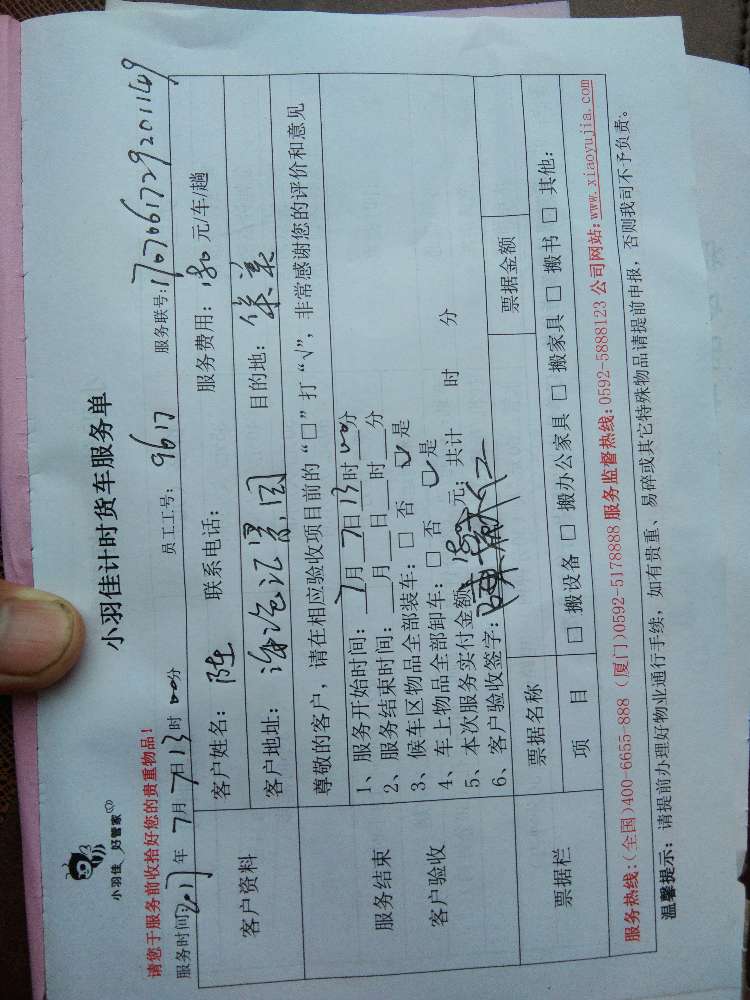 小羽佳 好管家
小羽佳计时货车服务单
请您于服务前收拾好您的贵重物品！
服务时间：2017年7月7日13时00分 员工工号：9617 服务联号：1707061729201149
客户资料
客户姓名：陈 联系电话： 服务费用：180元/车/趟
客户地址： 目的地：集美
尊敬的客户，请在相应验收项目前的“□”打“√”，非常感谢您的评价和意见
服务结束
客户验收
1、服务开始时间：7月7日13时00分
2、服务结束时间：__月__日__时__分
3、候车区物品全部装车：□ 否 ☑ 是
4、车上物品全部卸车：□ 否 ☑ 是
5、本次服务实付金额 元；共计 时 分
6、客户验收签字：
票据栏
票据名称 票据金额
项目 □ 搬设备 □ 搬办公家具 □ 搬家具 □ 搬书 □ 其他：
服务热线：（全国）400-6655-888（厦门）0592-5178888 服务监督热线：0592-5888123 公司网站：www.xiaoyujia.com
温馨提示：请提前办理好物业通行手续，如有贵重、易碎或其它特殊物品请提前申报，否则我司不予负责。